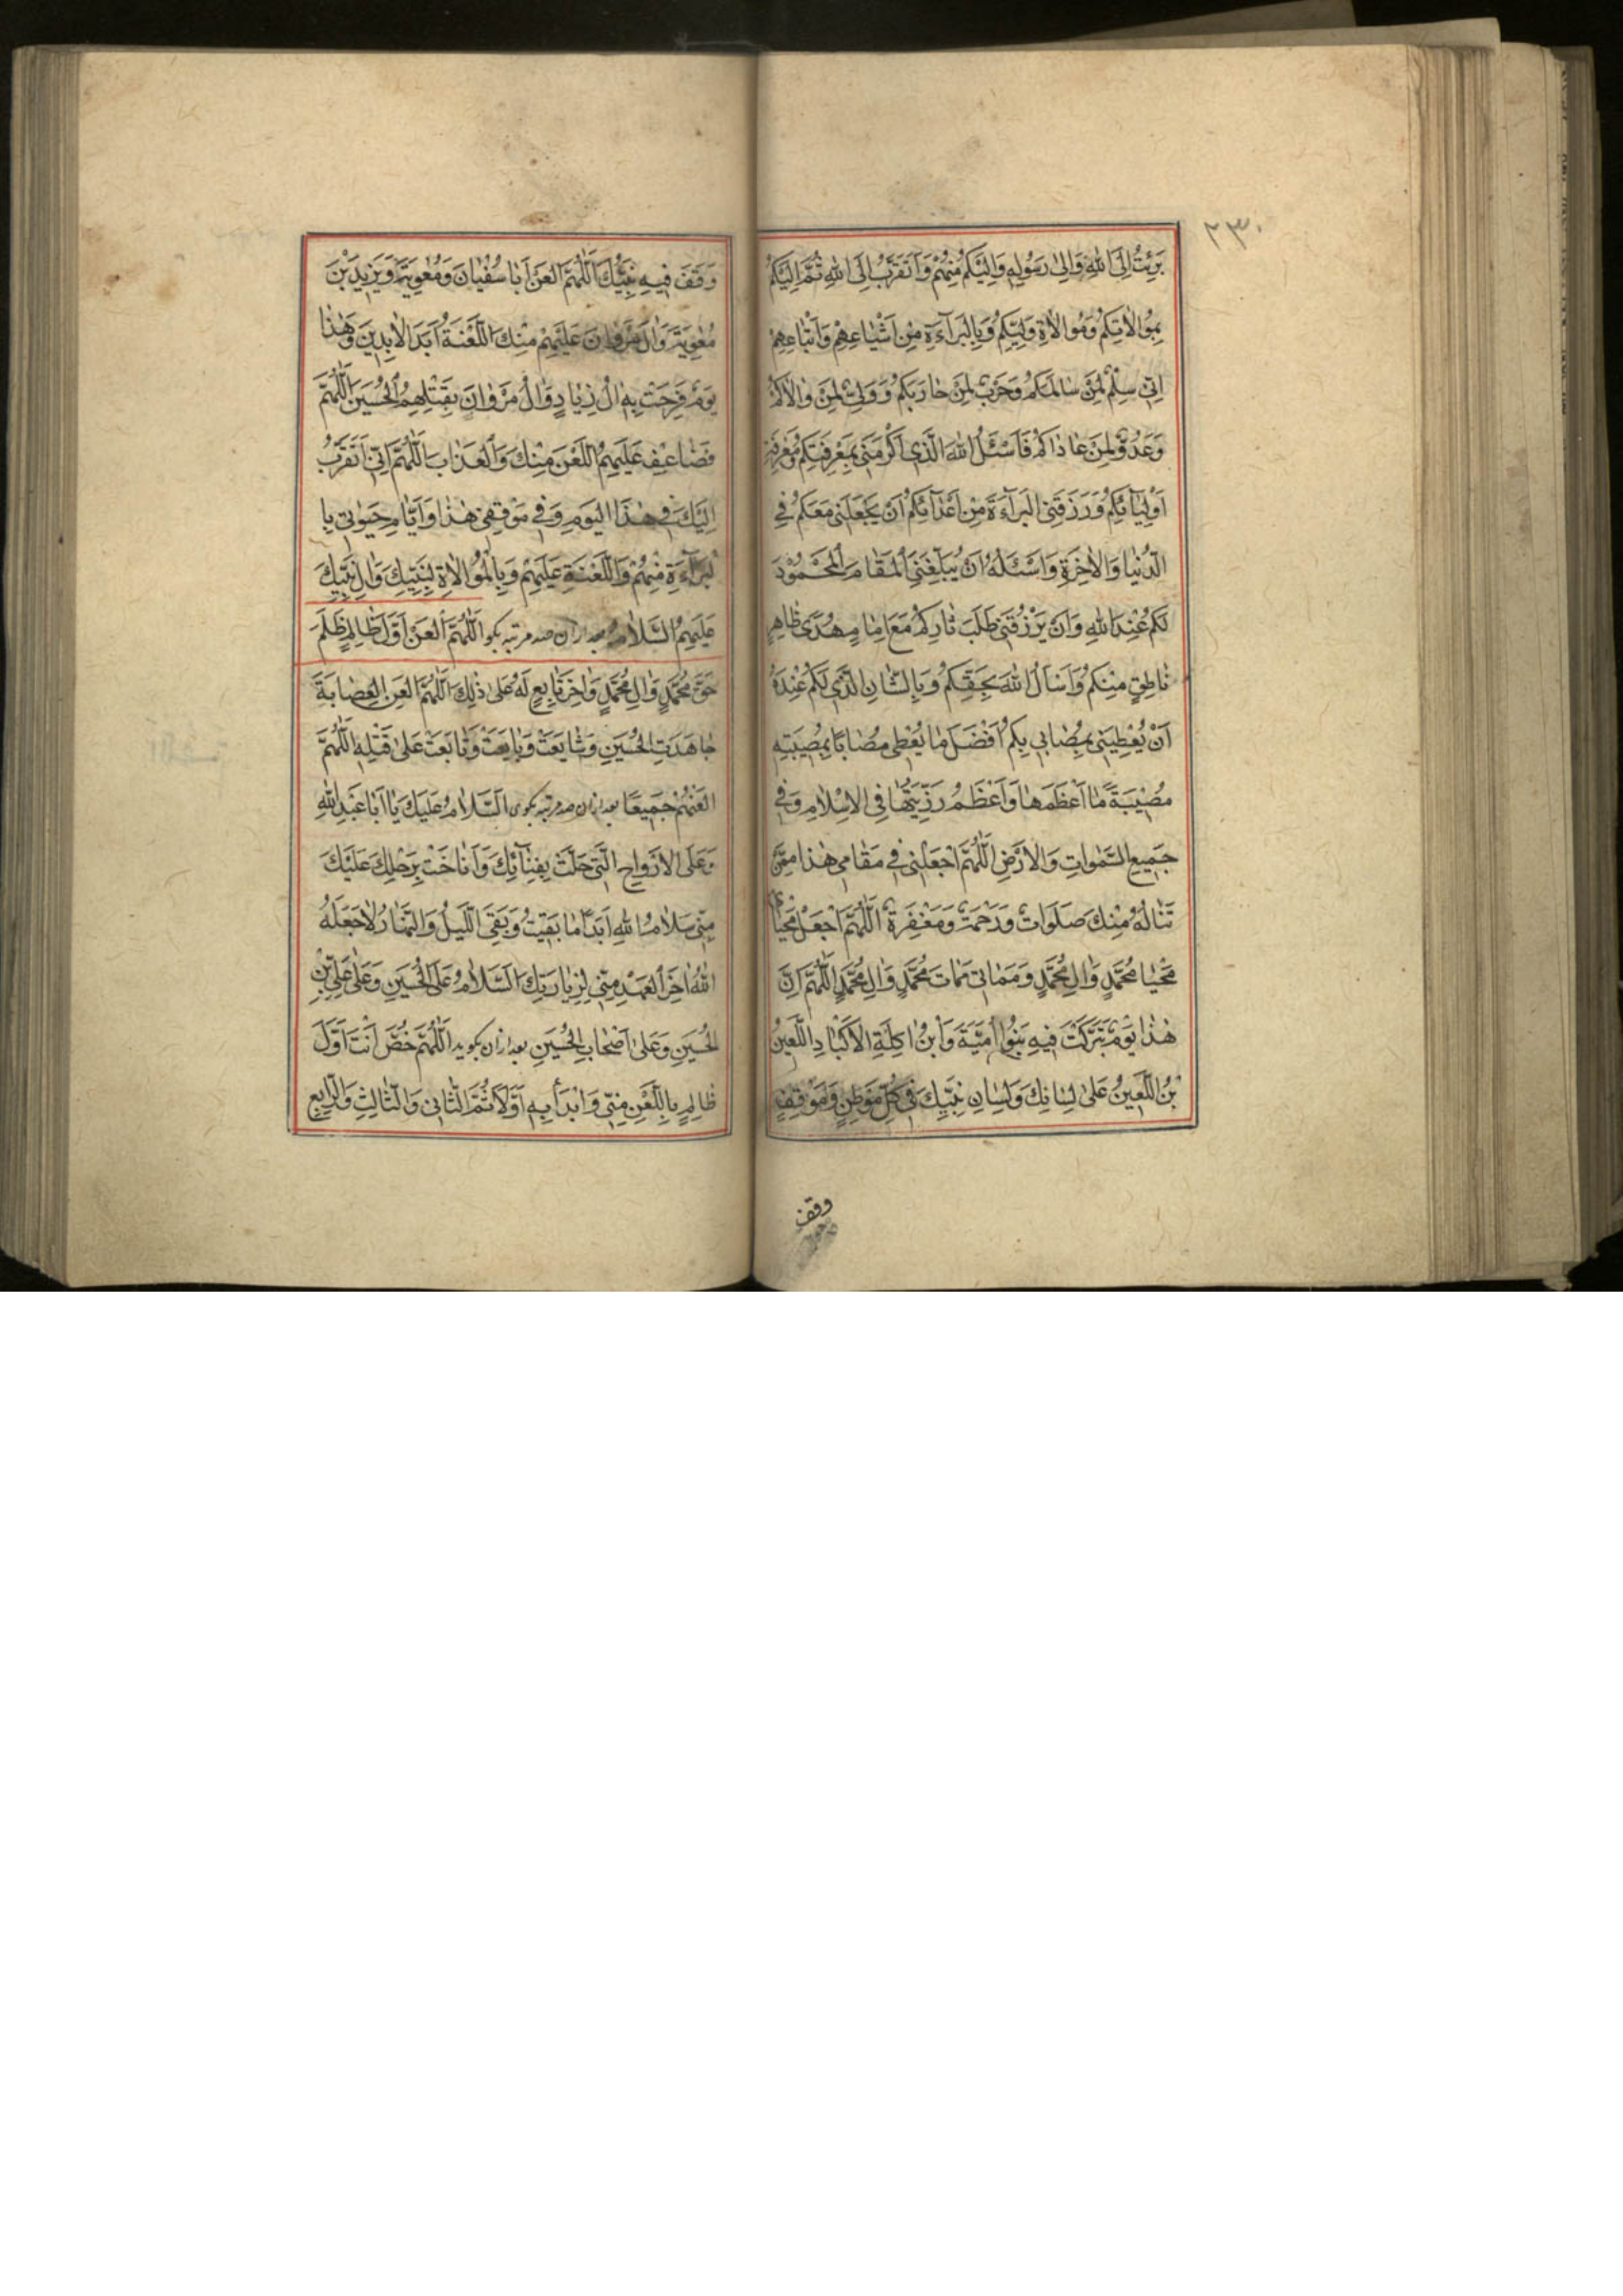 ٢٣٠
بَرِئْتُ اِلَى اللهِ وَاِلىٰ رَسُولِهِ وَاِلَيْكُمْ مِنْهُمْ وَاَتَقَرَّبُ اِلَى اللهِ ثُمَّ اِلَيْكُمْ
بِمُوٰالاٰتِكُمْ وَمُوٰالاٰةِ وَلِيِّكُمْ وَبِالْبَرٰآءَةِ مِنْ اَشْيٰاعِهِمْ وَاَتْبٰاعِهِمْ
اِنّى سِلْمٌ لِمَنْ سٰالَمَكُمْ وَحَرْبٌ لِمَنْ حٰارَبَكُمْ وَوَلِىٌّ لِمَنْ وٰالاٰكُمْ
وَعَدُوٌّ لِمَنْ عٰادٰاكُمْ فَاَسْئَلُ اللهَ الَّذى اَكْرَمَنى بِمَعْرِفَتِكُمْ وَمَعْرِفَةِ
اَوْلِيٰآئِكُمْ وَرَزَقَنِى الْبَرٰآءَةَ مِنْ اَعْدٰآئِكُمْ اَنْ يَجْعَلَنى مَعَكُمْ فِى
الدُّنْيٰا وَالاٰخِرَةِ وَاَسْئَلُهُ اَنْ يُبَلِّغَنِى الْمَقٰامَ الْمَحْمُودَ
لَكُمْ عِنْدَ اللهِ وَاَنْ يَرْزُقَنى طَلَبَ ثٰارِكُمْ مَعَ اِمٰامٍ مَهْدِىٍّ ظٰاهِرٍ
نٰاطِقٍ مِنْكُمْ وَاَسْاَلُ اللهَ بِحَقِّكُمْ وَبِالشَّاْنِ الَّذى لَكُمْ عِنْدَهُ
اَنْ يُعْطِيَنى بِمُصٰابى بِكُمْ اَفْضَلَ مٰا يُعْطى مُصٰابًا بِمُصيبَتِهِ
مُصيبَةً مٰا اَعْظَمَهٰا وَاَعْظَمَ رَزِيَّتَهٰا فِى الاِسْلاٰمِ وَفى
جَميعِ السَّمٰوٰاتِ وَالاَرْضِ اَللّٰهُمَّ اجْعَلْنى فى مَقٰامى هٰذٰا مِمَّنْ
تَنٰالُهُ مِنْكَ صَلَوٰاتٌ وَرَحْمَةٌ وَمَغْفِرَةٌ اَللّٰهُمَّ اجْعَلْ مَحْيٰاىَ
مَحْيٰا مُحَمَّدٍ وَاٰلِ مُحَمَّدٍ وَمَمٰاتى مَمٰاتَ مُحَمَّدٍ وَاٰلِ مُحَمَّدٍ اَللّٰهُمَّ اِنَّ
هٰذٰا يَوْمٌ تَبَرَّكَتْ فيهِ بَنُوا اُمَيَّةَ وَابْنُ اٰكِلَةِ الاَكْبٰادِ اللَّعينُ
بْنُ اللَّعينِ عَلىٰ لِسٰانِكَ وَلِسٰانِ نَبِيِّكَ فى كُلِّ مَوْطِنٍ وَمَوْقِفٍ
وقف
وَقَفَ فيهِ نَبِيُّكَ اَللّٰهُمَّ الْعَنْ اَبٰا سُفْيٰانَ وَمُعٰوِيَةَ وَيَزيدَ بْنَ
مُعٰوِيَةَ وَاٰلَ مَرْوٰانَ عَلَيْهِمْ مِنْكَ اللَّعْنَةُ اَبَدَ الاٰبِدينَ وَهٰذٰا
يَوْمٌ فَرِحَتْ بِهِ اٰلُ زِيٰادٍ وَاٰلُ مَرْوٰانَ بِقَتْلِهِمُ الْحُسَيْنَ اَللّٰهُمَّ
فَضٰاعِفْ عَلَيْهِمُ اللَّعْنَ مِنْكَ وَالْعَذٰابَ اَللّٰهُمَّ اِنّى اَتَقَرَّبُ
اِلَيْكَ فى هٰذَا الْيَوْمِ وَفى مَوْقِفى هٰذٰا وَاَيّٰامِ حَيٰوتى بِا
لْبَرٰآءَةِ مِنْهُمْ وَاللَّعْنَةِ عَلَيْهِمْ وَبِالْمُوٰالاٰةِ لِنَبِيِّكَ وَاٰلِ نَبِيِّكَ
عَلَيْهِمُ السَّلاٰمُ بعد ازان صد مرتبه بكو اَللّٰهُمَّ الْعَنْ اَوَّلَ ظٰالِمٍ ظَلَمَ
حَقَّ مُحَمَّدٍ وَاٰلِ مُحَمَّدٍ وَاٰخِرَ تٰابِعٍ لَهُ عَلىٰ ذٰلِكَ اَللّٰهُمَّ الْعَنِ الْعِصٰابَةَ
جٰاهَدَتِ الْحُسَيْنِ وَشٰايَعَتْ وَبٰايَعَتْ وَتٰابَعَتْ عَلىٰ قَتْلِهِ اَللّٰهُمَّ
الْعَنْهُمْ جَميعًا بعد ازان صد مرتبه بكوى اَلسَّلاٰمُ عَلَيْكَ يٰا اَبٰا عَبْدِ اللهِ
وَعَلَى الاَرْوٰاحِ الَّتى حَلَّتْ بِفِنٰآئِكَ وَاَنٰاخَتْ بِرَحْلِكَ عَلَيْكَ
مِنّى سَلاٰمُ اللهِ اَبَدًا مٰا بَقيتُ وَبَقِىَ اللَّيْلُ وَالنَّهٰارُ لاٰ جَعَلَهُ
اللهُ اٰخِرَ الْعَهْدِ مِنّى لِزِيٰارَتِكَ اَلسَّلاٰمُ عَلَى الْحُسَيْنِ وَعَلىٰ عَلِىِّ بْنِ
الْحُسَيْنِ وَعَلىٰ اَصْحٰابِ الْحُسَيْنِ بعد ازان بكويد اَللّٰهُمَّ خُصَّ اَنْتَ اَوَّلَ
ظٰالِمٍ بِاللَّعْنِ مِنّى وَابْدَأْ بِهِ اَوَّلاً ثُمَّ الثّٰانى وَالثّٰالِثِ وَالرّٰابِعِ